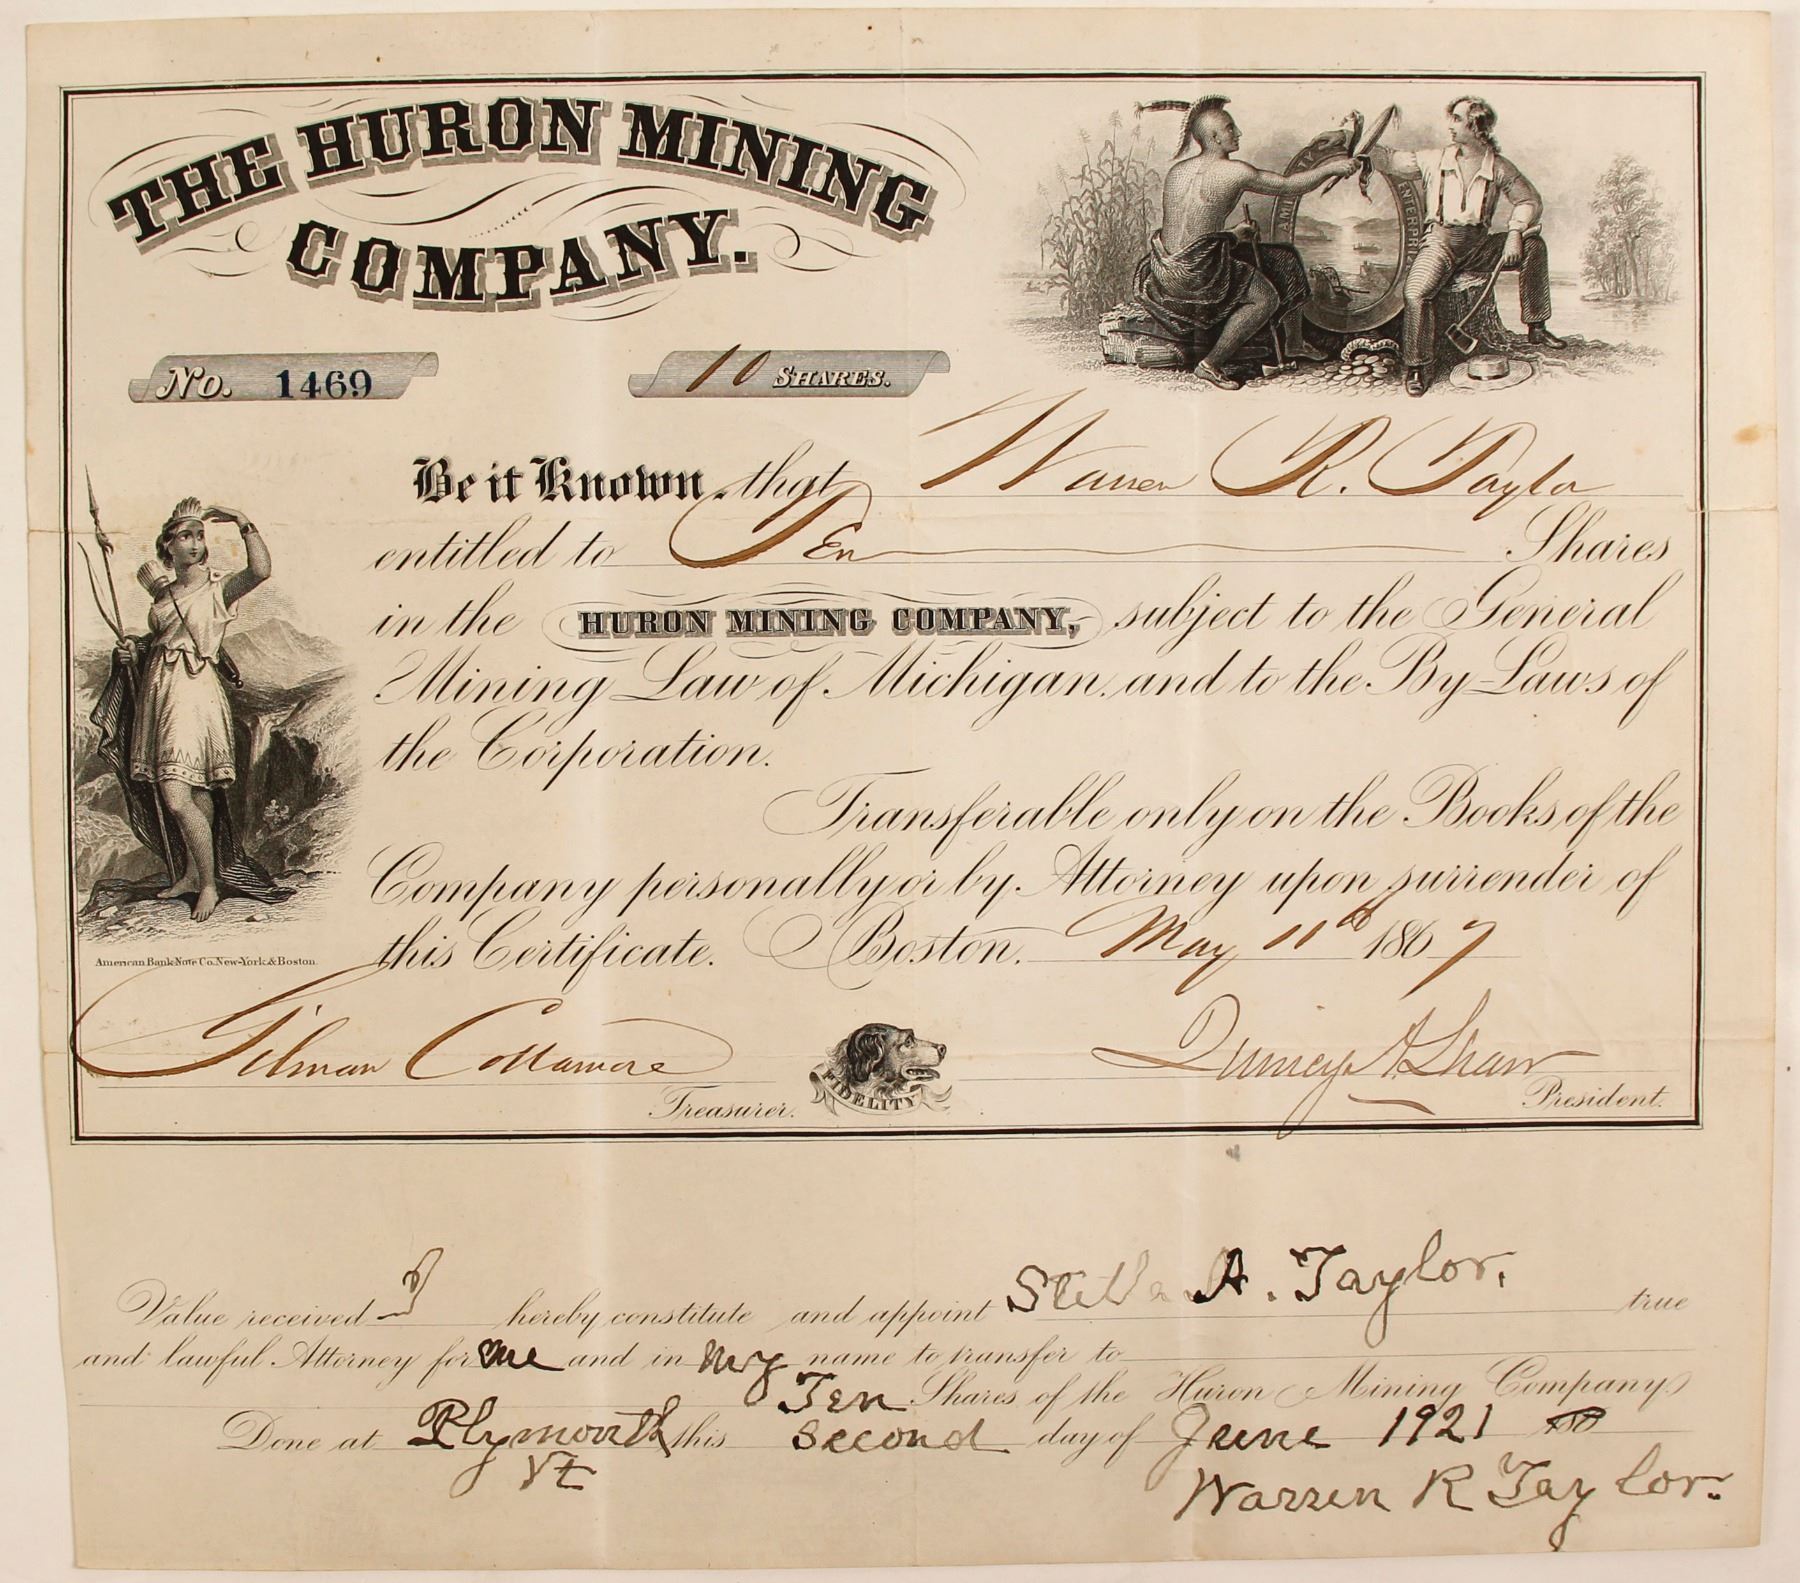 THE HURON MINING
COMPANY.
A MI
ENTERPRI
No. 1469
10 SHARES.
Be it Known, that Warren R. Taylor
entitled to Ten Shares
in the HURON MINING COMPANY, subject to the General
Mining Law of Michigan, and to the By-Laws of
the Corporation.
Transferable only on the Books of the
Company personally or by Attorney upon surrender of
this Certificate. Boston, May 11th 1867
American Bank Note Co. New-York & Boston.
Gilman Collamore
Treasurer.
FIDELITY
Quincy A. Shaw
President.
Value received I hereby constitute and appoint Stella A. Taylor. true
and lawful Attorney for me and in my name to transfer to
Ten Shares of the Huron Mining Company
Done at Plymouth this second day of June 1921
Vt
Warren R Taylor.